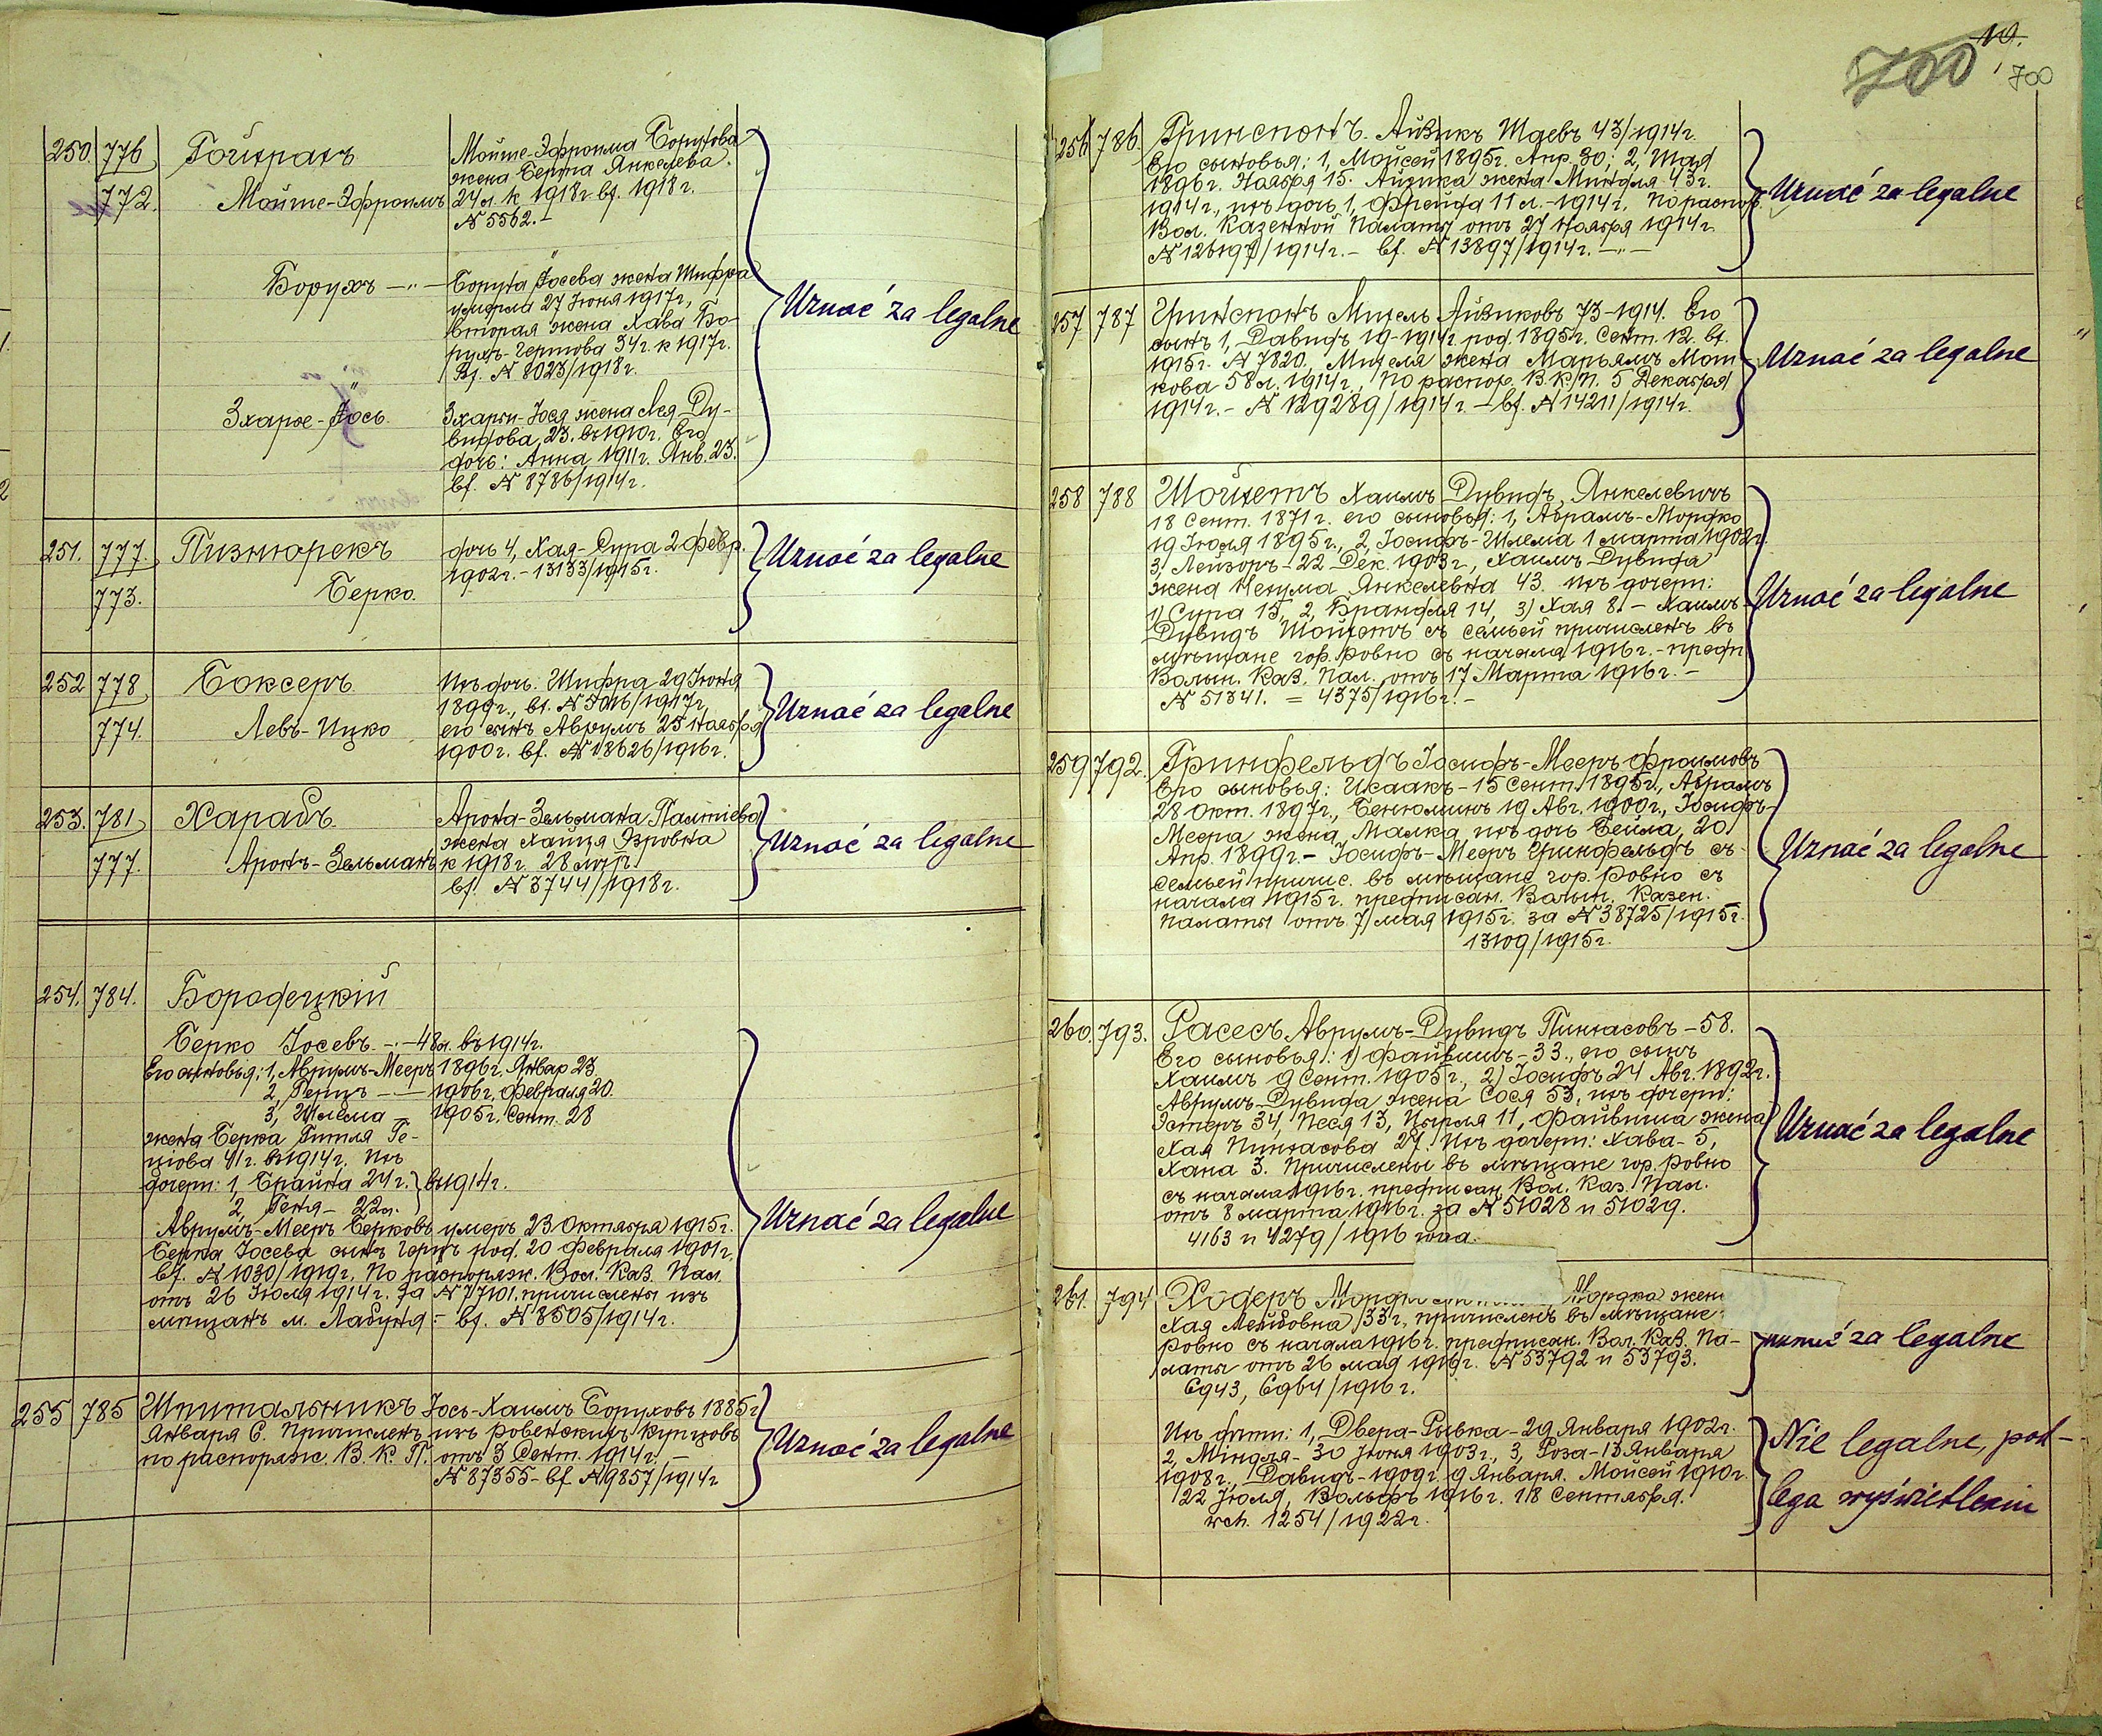 250. 776 Гойхрахъ Мойше-Эфроима Борухова
жена Берта Янкелева.
772. Мойше-Эфроимъ 24 л. к 1918 г. вх. 1918 г.
№ 5562.-
Борухъ -"- Боруха Іосева жена Шифра
умерла 27 Іюня 1917 г,
вторая жена Хава Бо-
рухъ-Гершова 34 г. к 1917 г.
Вх. № 8023/1918 г.
Uznać za legalne
Зхарье-Іось Зхарьи-Іося жена Лея Ду-
видова 23. въ 1910 г. Его
дочь: Анна 1911 г. Янв. 23.
вх. № 8786/1914 г.
251. 777. Пизнюрекъ дочь 4, Хая-Сура 2 февр.
1902 г. - 13133/1915 г.
773. Берко.
Uznać za legalne
252 778 Боксеръ Ихъ дочь: Шифра 29 Іюня
1899 г., вх. № 5016/1917 г,
774. Левъ-Ицко его сынъ Аврумъ 25 Ноября
1900 г. вх. № 18626/1916 г.
Uznać za legalne
253. 781 Харабъ Арона-Зельмана Палтіева
жена Хайця Эзровна
777. Аронъ-Зельманъ к 1918 г. 28 лѣтъ.
вх. № 3744/1918 г.
Uznać za legalne
254. 784. Бородецкій
Берко Іосевъ. -·- 48 л. въ 1914 г.
Его сыновья: 1, Аврумъ-Мееръ 1896 г. Январ 23
2, Герцъ -·- 1906 г. Февраля 20.
3, Шлема - 1905 г. Сент. 28
жена Берка Гитля Ге-
ціова 41 г. въ 1914 г. Ихъ
дочери: 1, Брайна 24 г. въ 1914 г.
2, Геня - 22 л.
Аврумъ-Мееръ Берковъ умеръ 23 Октября 1915 г.
Берка Іосева сынъ Герцъ род. 20 Февраля 1901 г,
вх. № 1030/1919 г. По распоряж. Вол. Каз. Пал.
отъ 26 Іюля 1914 г. за № 77101. причислены изъ
мѣщанъ м. Лабуня - вх. № 8505/1914 г.
Uznać za legalne
255 785 Шпитальникъ Іось-Хаимъ Боруховъ 1885 г
Января 6. Причисленъ изъ Ровенскихъ купцовъ
по распоряж. В. К. П. отъ 3 Сент. 1914 г. -
№ 87355 - вх № 9857/1914 г
Uznać za legalne
10.
700 700
256 786. Гринспонъ. Айзикъ Шаевъ 43/1914 г.
Его сыновья: 1, Мойсей 1895 г. Апр. 30; 2, Шая
1896 г. Ноября 15. Айзика жена Миндля 43 г.
1914 г., ихъ дочь 1, Фрейда 11 л. - 1914 г. По распор.
Вол. Казенной Палаты отъ 27 Ноября 1914 г.
№ 126197/1914 г. - вх. № 13897/1914 г. -"-
Uznać za legalne
257 787 Гринспонъ Михель Айзиковъ 73 - 1914. Его
сынъ 1, Давидъ 19 - 1914 г род. 1895 г. Сент. 12. вх.
1915 г. № 7820. Михеля жена Марьямъ Мош
кова 58 л. 1914 г., По распор. В. К. П. 5 Декабря
1914 г. - № 129289/1914 г. - вх. № 14211/1914 г.
Uznać za legalne
258 788 Шойхетъ Хаимъ Дувидъ Янкелевичъ
18 Сент. 1871 г. его сыновья: 1, Абрамъ-Мордко
19 Іюля 1895 г., 2, Іосифъ-Шлема 1 марта 1902 г.
3, Лейзоръ - 22 Дек. 1903 г., Хаимъ Дувида
жена Нехума Янкелевна 43. ихъ дочери:
1) Сура 15, 2, Брандля 14, 3) Хая 8. - Хаимъ-
Дувидъ Шойхетъ съ семьей причисленъ въ
мѣщане гор. Ровно съ начала 1916 г. - предп
Волын. Каз. Пал. отъ 17 Марта 1916 г. -
№ 51341. = 4375/1916 г. -
Uznać za legalne
259 792. Гринфельдъ Іосифъ-Мееръ Фроимовъ
Его сыновья: Исаакъ - 15 Сент. 1895 г., Абрамъ
28 Окт. 1897 г., Бенюминъ 19 Авг. 1900 г., Іосифъ-
Меера жена Малка, ихъ дочь Бейла, 20
Апр. 1899 г. - Іосифъ-Мееръ Гринфельдъ съ
семьей причис. въ мѣщане гор. Ровно съ
начала 1915 г. предписан. Волын. Казен.
Палаты отъ 7 мая 1915 г. за № 38725/1915 г.
13109/1915 г.
Uznać za legalne
260. 793. Расесъ Аврумъ-Дувидъ Пинхасовъ - 58.
Его сыновья: 1) Файвишъ - 33., его сынъ
Хаимъ 9 Сент. 1905 г., 2) Іосифъ 24 Авг. 1892 г.
Аврумъ-Дувида жена Сося 53, ихъ дочери:
Эстеръ 34, Песя 13, Цырля 11, Файвиша жена
Хая Пинхасова 27. Ихъ дочери: Хава - 5,
Хана 3. Причислены въ мѣщане гор. Ровно
съ начала 1916 г. предписан. Вол. Каз. Пал.
отъ 8 марта 1916 г. за № 51028 и 51029.
4163 и 4279/1916 года.
Uznać za legalne
261. 794 Ходеръ Мордка жен
Хая Лейбовна 33 г., причисленъ въ мѣщане
Ровно съ начала 1916 г. предписан. Вол. Каз. Па-
латы отъ 26 мая 1916 г. № 53792 и 53793.
6943, 6964/1916 г.
za legalne
Ихъ дѣти: 1, Двера-Рывка - 29 Января 1902 г.
2, Миндля - 30 Іюня 1903 г., 3, Роза - 13 Января
1908 г., Давидъ - 1909 г. 9 Января. Мойсей 1910 г.
22 Іюля, Вольфъ 1916 г. 18 Сентября.
wch. 1254/1922 г.
Nie legalne, pod-
lega wyświetleniu